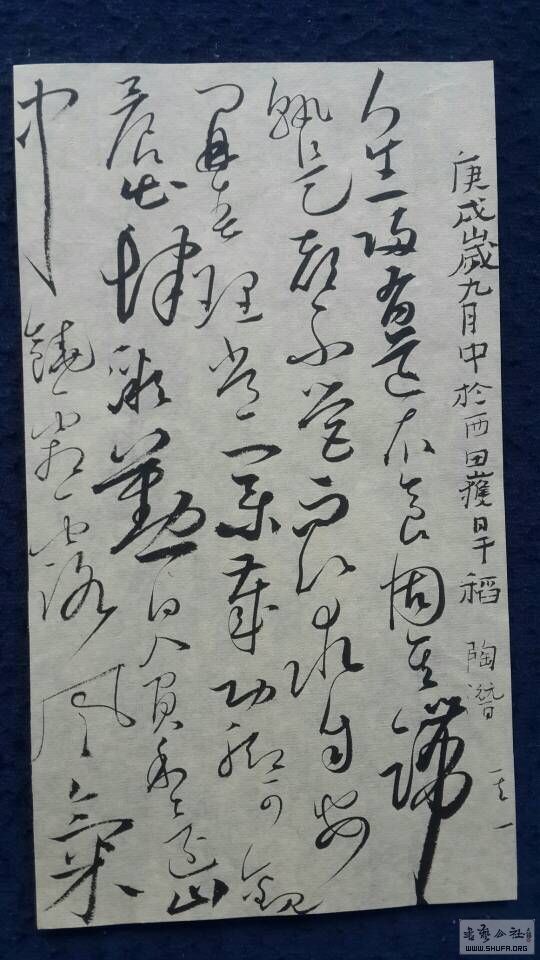 庚戌歲九月中於西田穫旱稻 陶潛 之一
人生歸有道衣食固其端
孰是都不營而以求自安
開春理常業歲功聊可觀
晨出肆微勤日入負禾還山
中饒霜露風氣
书艺公社
WWW.SHUFA.ORG